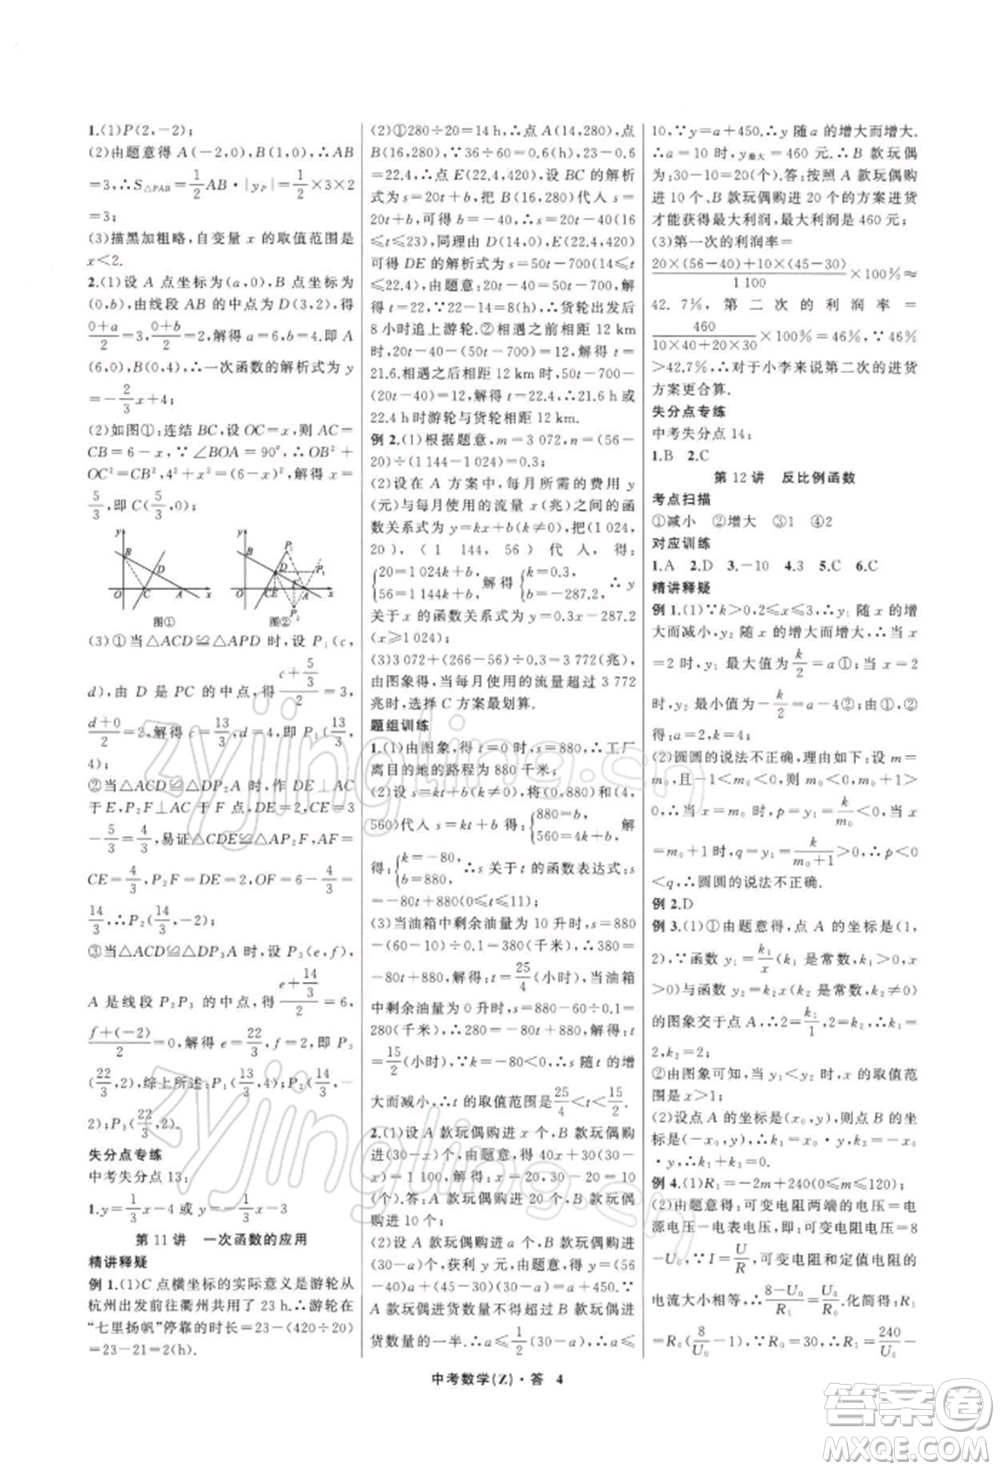 1.(1)P(2,-2);
(2)由题意得 A(-2,0),B(1,0),∴AB
=3,∴S△PAB=1/2 AB·|yP|=1/2×3×2
=3;
(3)描黑加粗略,自变量 x 的取值范围是
x<2.
2.(1)设 A 点坐标为(a,0),B 点坐标为
(0,b),由线段 AB 的中点为 D(3,2),得
(0+a)/2=3,(0+b)/2=2,解得 a=6,b=4,∴A
(6,0),B(0,4),∴一次函数的解析式为 y=
-2/3 x+4;
(2)如图①:连结 BC,设 OC=x,则 AC=
CB=6-x,∵∠BOA=90°,∴OB²+
OC²=CB²,4²+x²=(6-x)²,解得 x=
5/3,即 C(5/3,0);
图① 图②
(3)①当△ACD≌△APD 时,设 P1(c,
d),由 D 是 PC 的中点,得(c+5/3)/2=3,
(d+0)/2=2,解得 c=13/3,d=4,∴P1(13/3,
4);
②当△ACD≌△DP2A 时,作 DE⊥AC
于 E,P2F⊥AC 于 F 点,DE=2,CE=3
-5/3=4/3,易证△CDE≌△AP2F,AF=
CE=4/3,P2F=DE=2,∴OF=6-4/3=
14/3,∴P2(14/3,-2).
③当△ACD≌△DP3A 时,设 P3(e,f),
A 是线段 P2P3 的中点,得(e+14/3)/2=6,
(f+(-2))/2=0,解得 e=22/3,f=2,∴P3
(22/3,2),综上所述:P1(13/3,4);P2(14/3,-
2);P3(22/3,2).
失分点专练
中考失分点 13:
1.y=1/3 x-4 或 y=-1/3 x-3
第 11 讲 一次函数的应用
精讲释疑
例 1.(1)C 点横坐标的实际意义是游轮从
杭州出发前往衢州共用了 23 h.∴游轮在
“七里扬帆”停靠的时长=23-(420÷20)
=23-21=2(h).
(2)①280÷20=14 h,∴点 A(14,280),点
B(16,280),∵36÷60=0.6(h),23-0.6=
22.4,∴点 E(22.4,420),设 BC 的解析式
为 s=20t+b,把 B(16,280)代入 s=20t+
b,可得 b=-40,∴s=20t-40(16≤t
≤23),同理由 D(14,0),E(22.4,420)
可得 DE 的解析式为 s=50t-700(14≤t
≤22.4),由题意:20t-40=50t-700,解
得 t=22,∵22-14=8(h),∴货轮出发后
8 小时追上游轮.②相遇之前相距 12 km
时,20t-40-(50t-700)=12,解得 t=
21.6.相遇之后相距 12 km 时,50t-700
-(20t-40)=12,解得 t=22.4,∴21.6 h
或 22.4 h 时游轮与货轮相距 12 km.
例 2.(1)根据题意,m=3 072,n=(56-
20)÷(1 144-1 024)=0.3;
(2)设在 A 方案中,当每月使用的流量不
少于 1 024 兆时,每月所需的费用为 y
(元)与每月使用的流量 x(兆)之间的函
数关系式为 y=kx+b(k≠0),把(1 024,
20),(1 144,56)代入,得:
{20=1 024k+b, 56=1 144k+b,∴{k=0.3, b=-287.2,∴y
关于 x 的函数关系式为 y=0.3x-287.2
(x≥1 024);
(3)3 072+(266-56)÷0.3=3 772(兆),
由图象得,当每月使用的流量超过 3 772
兆时,选择 C 方案最划算.
题组训练
1.(1)由图象,得 t=0 时,s=880,∴工厂
离目的地的路程为 880 千米;
(2)设 s=kt+b(k≠0),将(0,880)和(4,
560)代入 s=kt+b 得:{880=b, 560=4k+b, 解
得:{k=-80, b=880,∴s 关于 t 的函数表达式:s=
-80t+880(0≤t≤11);
(3)当油箱中剩余油量为 10 升时,s=880
-(60-10)÷0.1=380(千米),∴380=
-80t+880,解得:t=25/4(小时),当油箱
中剩余油量为 0 升时,s=880-60÷0.1=
280(千米),∴280=-80t+880,解得:t=
15/2(小时),∵k=-80<0,∴s 随 t 的增
大而减小,∴t 的取值范围是25/4<t<15/2.
2.(1)设 A 款玩偶购进 x 个,B 款玩偶购进
(30-x)个,由题意,得 40x+30(30-x)
=1 100,解得:x=20.30-20=10(个).
答:A 款玩偶购进 20 个,B 款玩偶购
进 10 个;
(2)设 A 款玩偶购进 a 个,B 款玩偶购进
(30-a)个,获利 y 元,由题意,得 y=(56-
40)a+(45-30)(30-a)=a+450.∵A
款玩偶进货数量不得超过 B 款玩偶进
货数量的一半.∴a≤1/2(30-a),∴a≤
10,∵y=a+450.∴y 随 a 的增大而增大.
∴a=10 时,y最大=460 元.∴B 款玩偶
为:30-10=20(个).答:按照 A 款玩偶购
进 10 个、B 款玩偶购进 20 个的方案进货
才能获得最大利润,最大利润是 460 元;
(3)第一次的利润率=
(20×(56-40)+10×(45-30))/1 100×100%≈
42.7%,第二次的利润率=
460/(10×40+20×30)×100%=46%,∵46%
>42.7%,∴对于小李来说第二次的进货
方案更合算.
失分点专练
中考失分点 14:
1.B 2.C
第 12 讲 反比例函数
考点扫描
①减小 ②增大 ③1 ④2
对应训练
1.A 2.D 3.-10 4.3 5.C 6.C
精讲释疑
例 1.(1)∵k>0,2≤x≤3,∴y1 随 x 的增
大而减小,y2 随 x 的增大而增大,∴当 x=
2 时,y1 最大值为k/2=a①;当 x=2 时,
y2 最小值为-k/2=a-4②;由①,②
得:a=2,k=4;
(2)圆圆的说法不正确,理由如下:设 m=
m0,且-1<m0<0,则 m0<0,m0+1>
0,∴当 x=m0 时,p=y1=k/m0<0,当 x
=m0+1 时,q=y1=k/(m0+1)>0,∴p<0
<q,∴圆圆的说法不正确.
例 2.D
例 3.(1)①由题意得,点 A 的坐标是(1,
2),∵函数 y1=k1/x(k1 是常数,k1>0,x
>0)与函数 y2=k2x(k2 是常数,k2≠0)
的图象交于点 A,∴2=k1/1,2=k2,∴k1=
2,k2=2;
②由图象可知,当 y1<y2 时,x 的取值范
围是 x>1;
(2)设点 A 的坐标是(x0,y),则点 B 的坐
标是(-x0,y),∴k1=x0·y,k3=-x0·
y,∴k1+k3=0.
例 4.(1)R1=-2m+240(0≤m≤120);
(2)由题意得:可变电阻两端的电压=电
源电压-电表电压,即:可变电阻电压=8
-U0,∵I=U/R,可变电阻和定值电阻
的电流大小相等,∴(8-U0)/R1=U0/R0.化简得:R1
=R0(8/U0-1),∵R0=30,∴R1=240/U0-
中考数学(Z)·答 4
zyjingling.cn
zyjingling.cn
答案圈
MXQE.COM